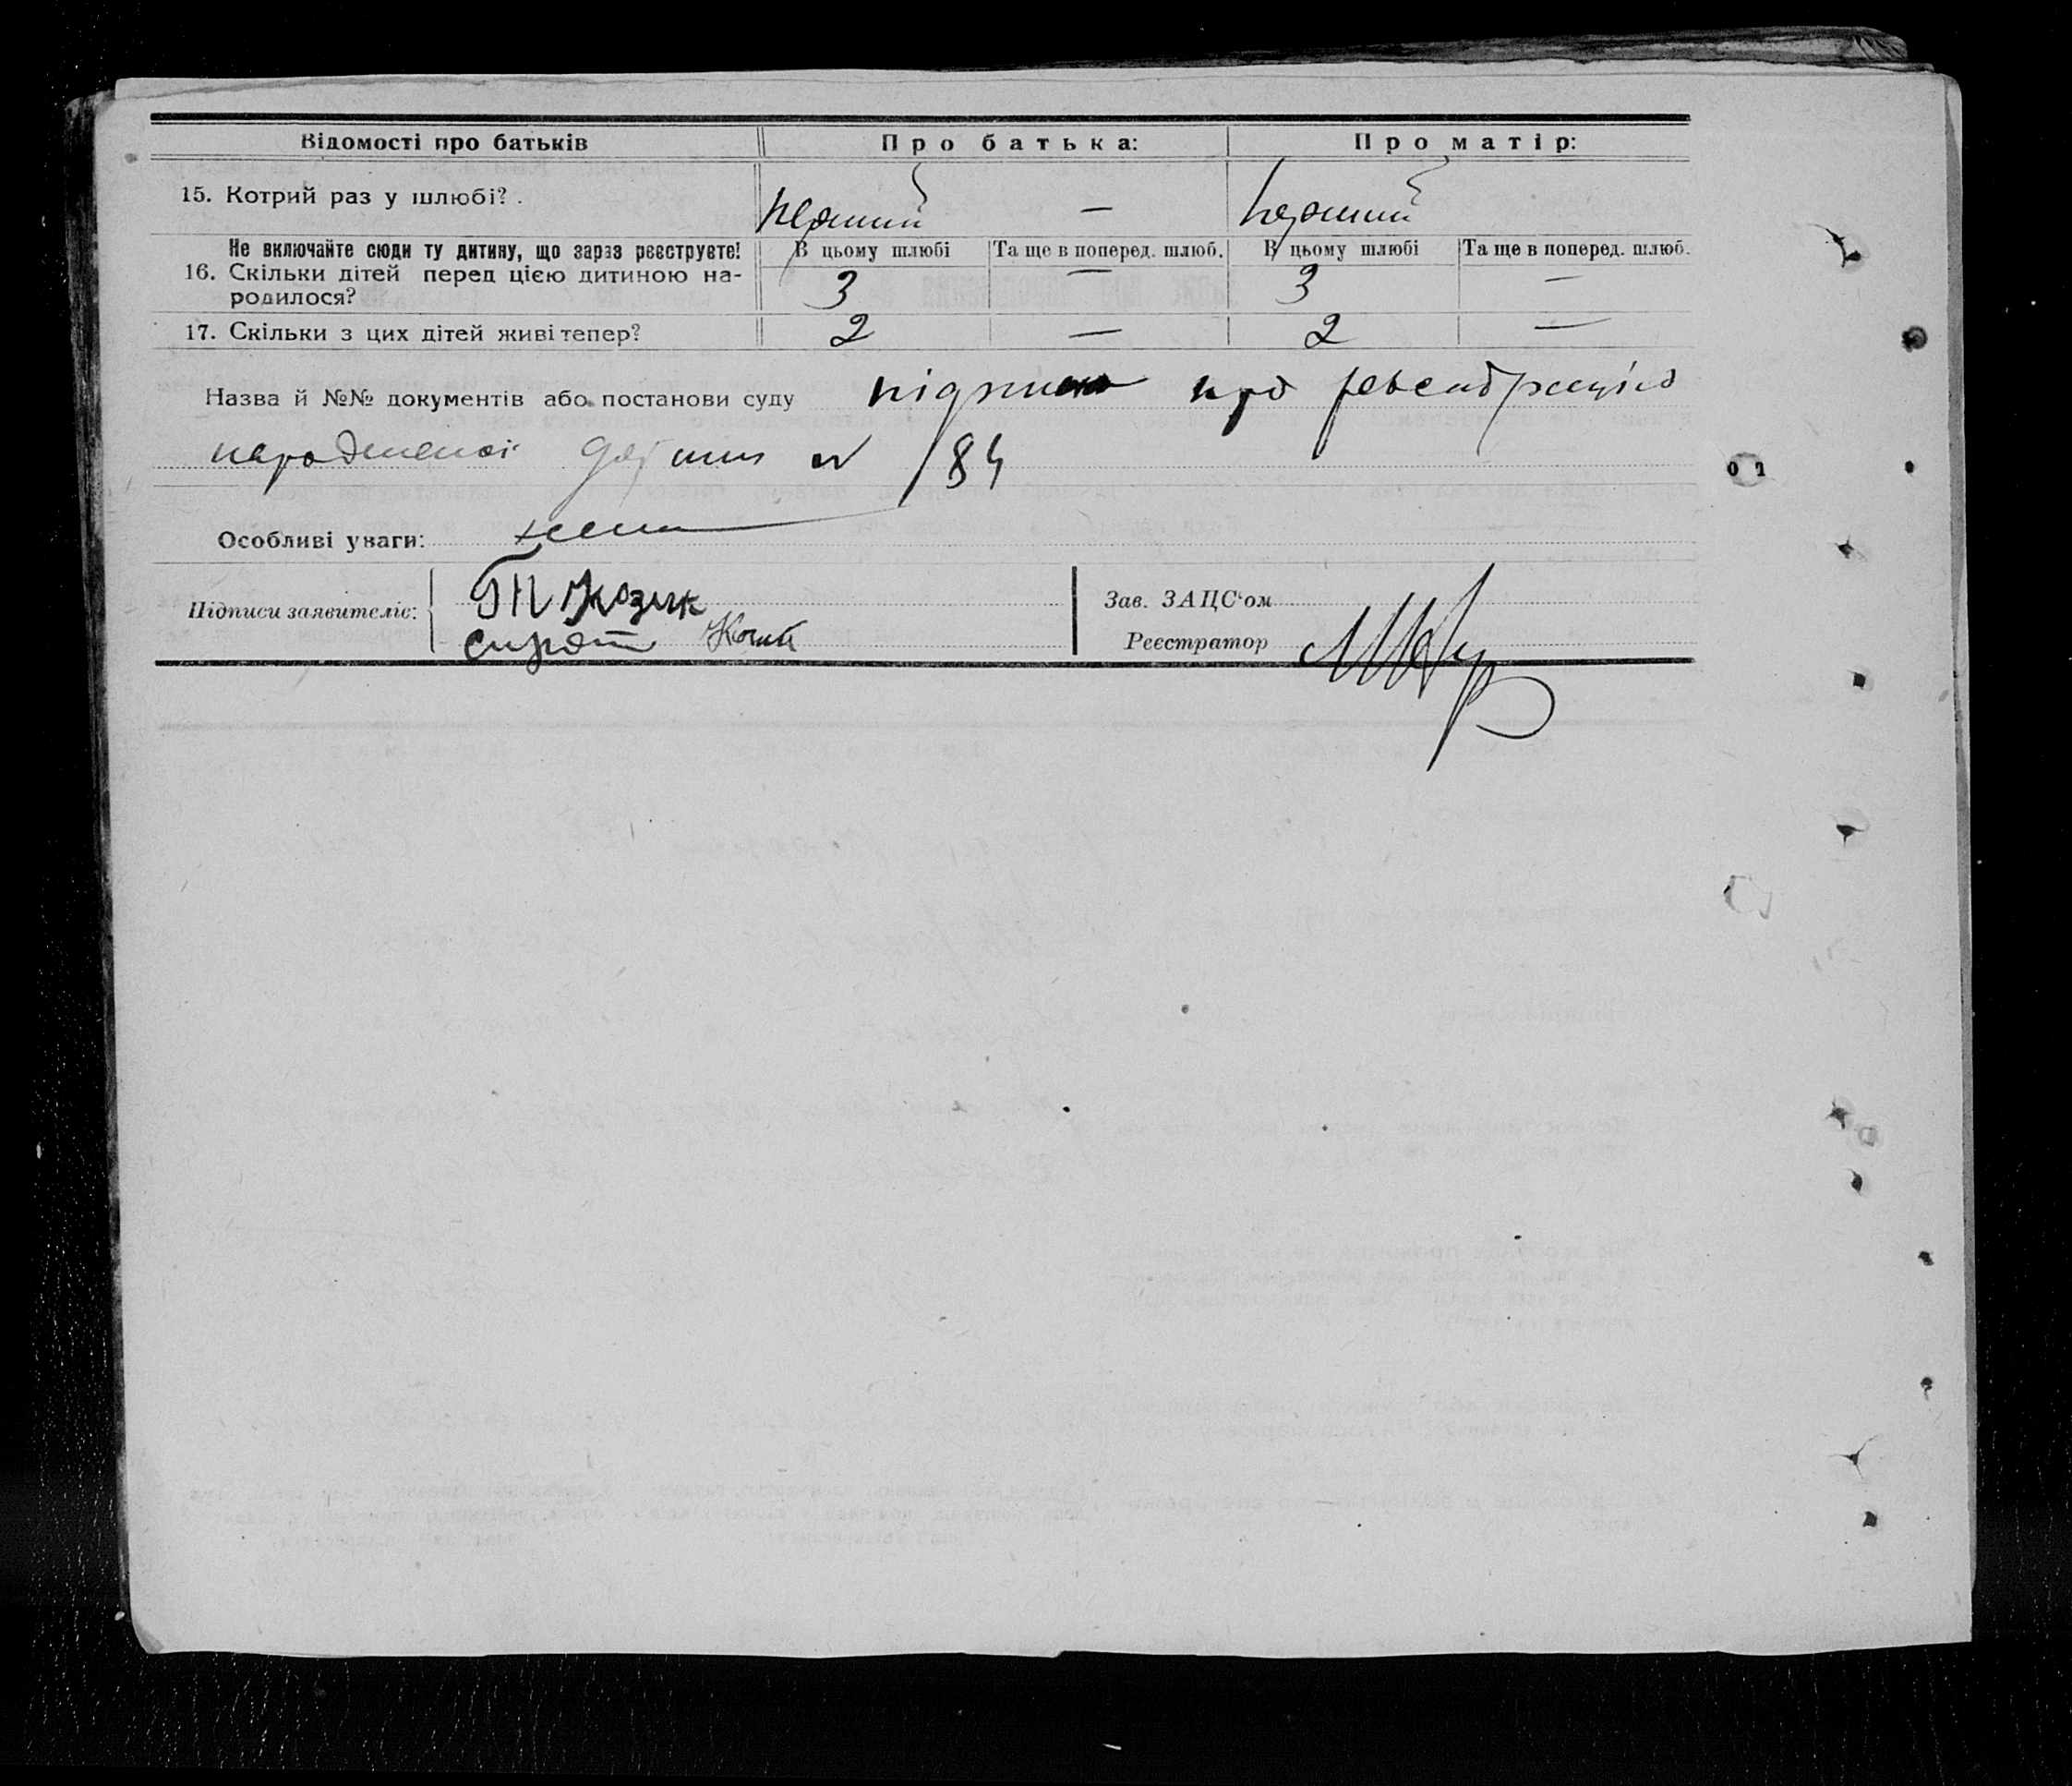 Відомості про батьків Про батька: Про матір:
15. Котрий раз у шлюбі? перший — перший
Не включайте сюди ту дитину, що зараз реєструєте! В цьому шлюбі Та ще в поперед. шлюб. В цьому шлюбі Та ще в поперед. шлюб.
16. Скільки дітей перед цією дитиною на-
родилося? 3 — 3 —
17. Скільки з цих дітей живі тепер? 2 — 2 —
Назва й №№ документів або постанови суду про
184
Особливі уваги:
Підписи заявителів: Козик
Зав. ЗАЦС'ом
Реєстратор